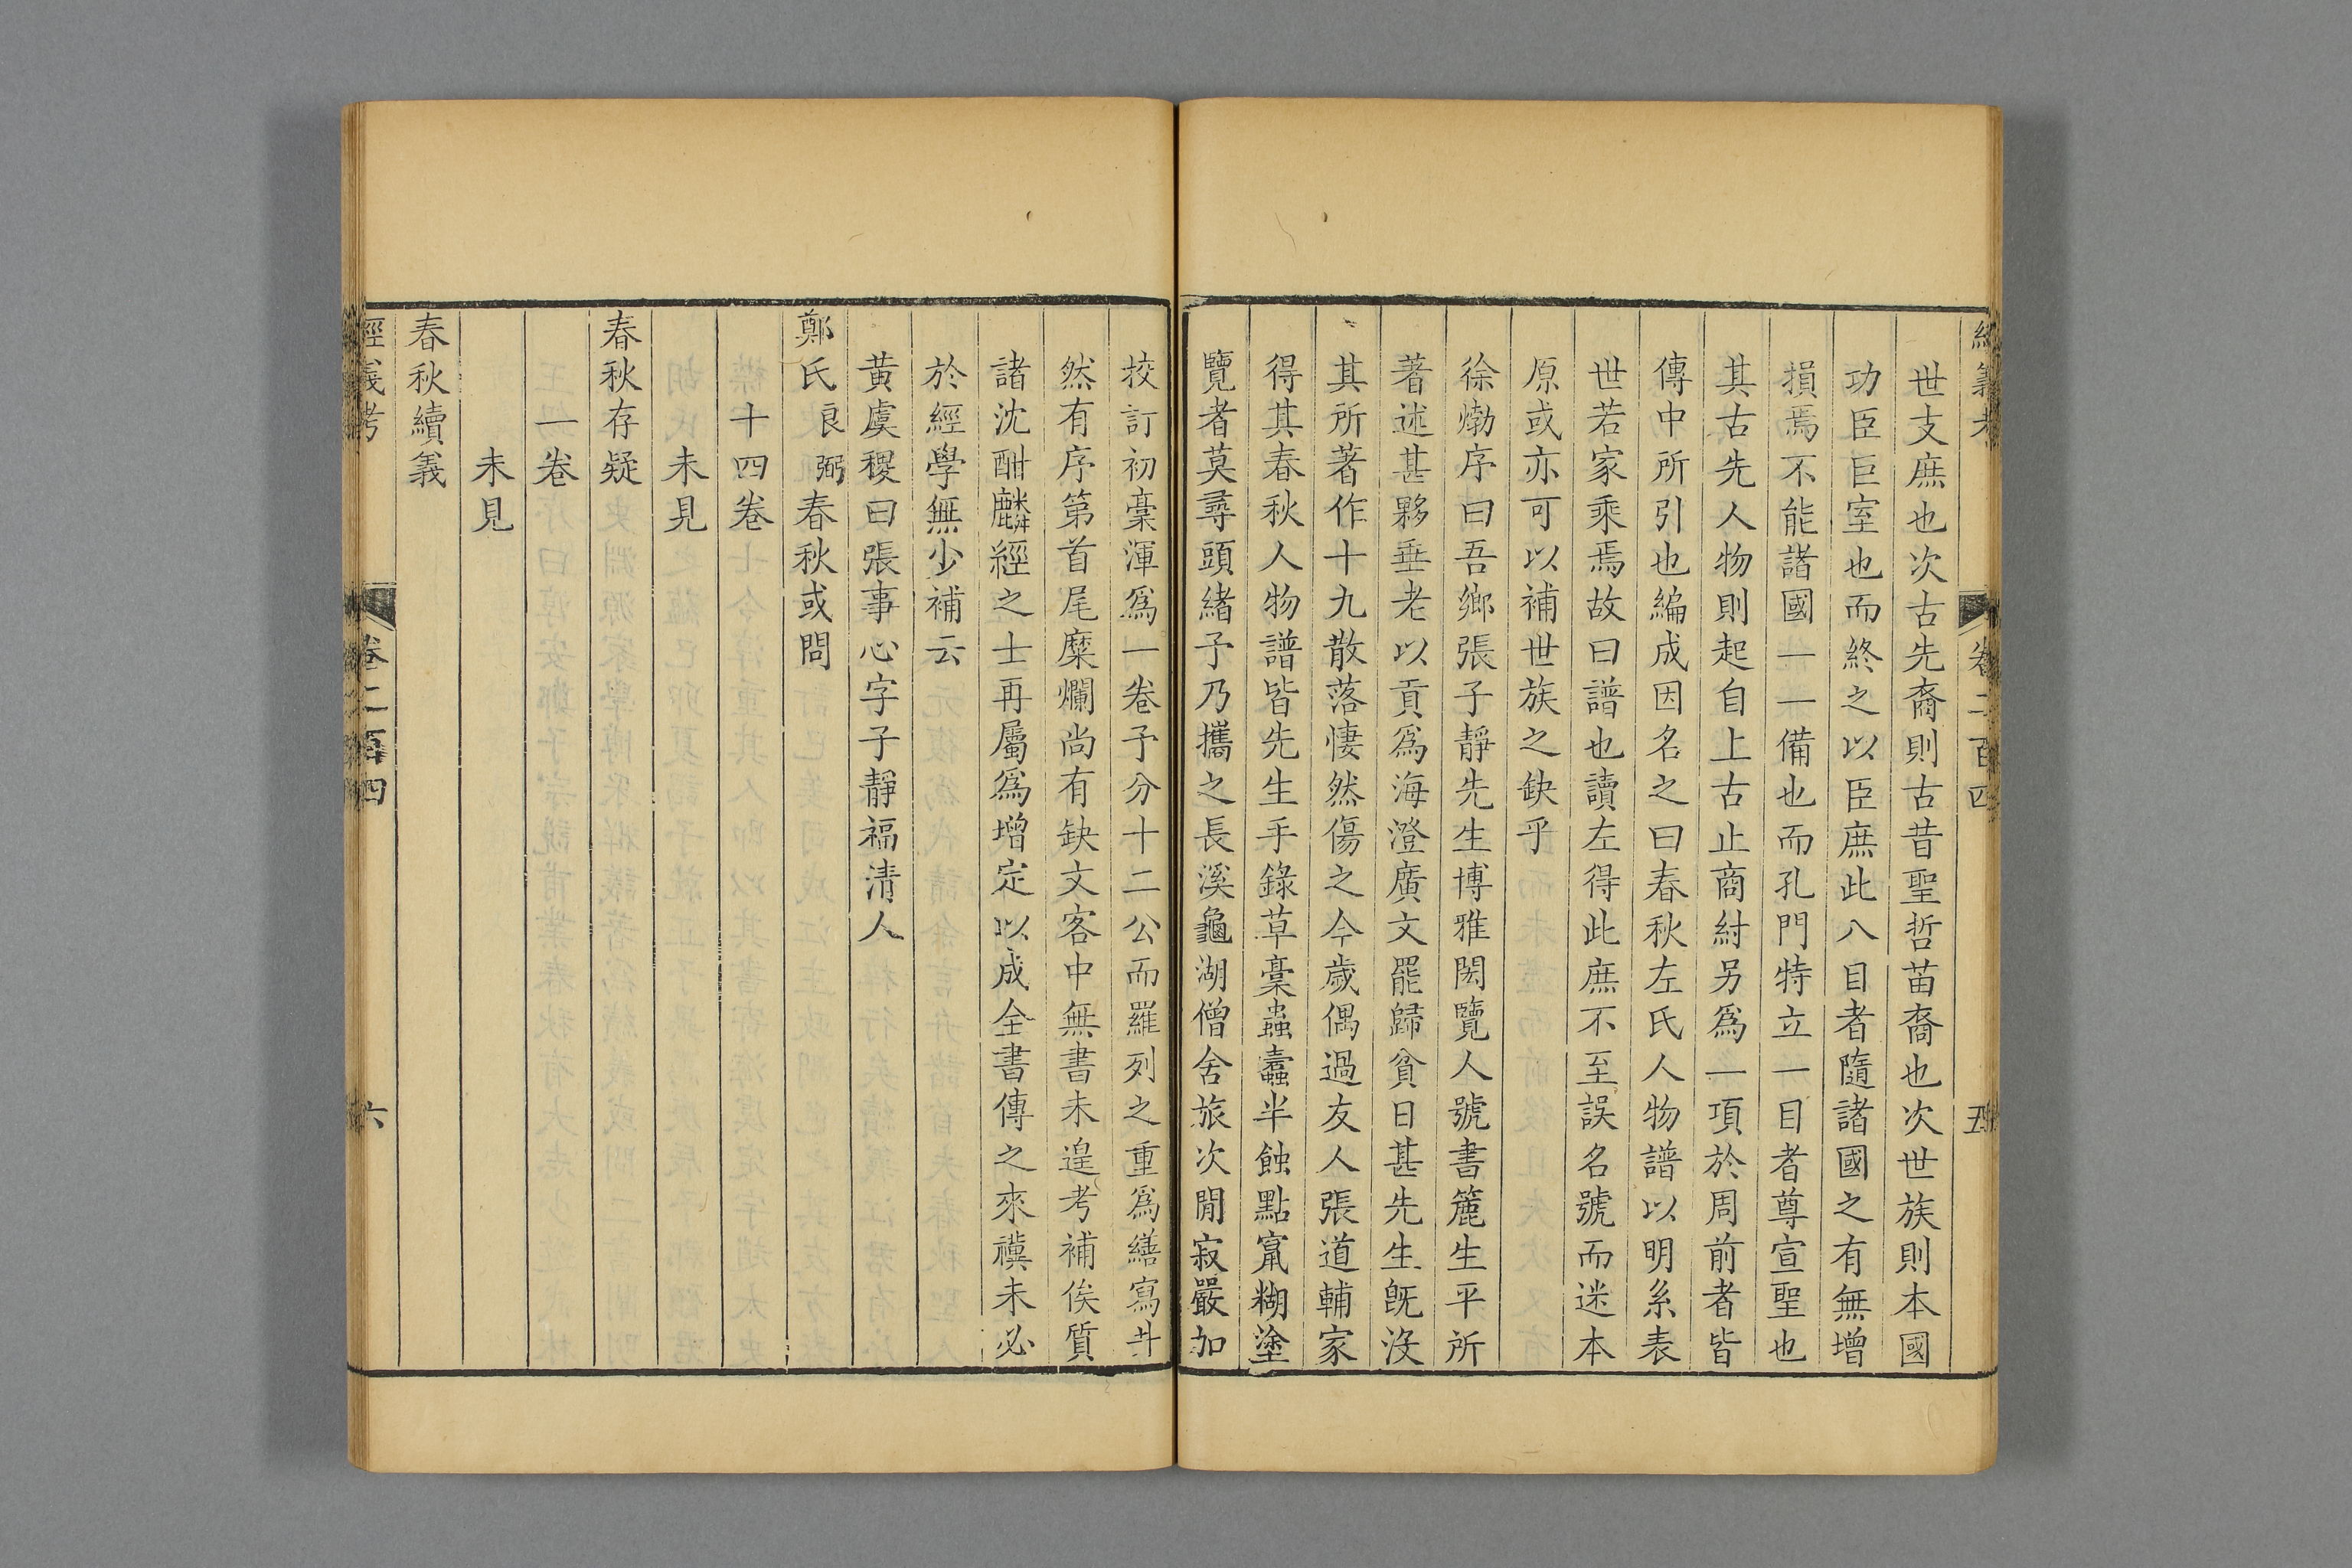 經義考 卷二百四 五
世支庶也次古先裔則古昔聖哲苗裔也次世族則本國
功臣巨室也而終之以臣庶此八目者隨諸國之有無增
損焉不能諸國一一備也而孔門特立一目者尊宣聖也
其古先人物則起自上古止商紂另爲一項於周前者皆
傳中所引也編成因名之曰春秋左氏人物譜以明系表
世若家乘焉故曰譜也讀左得此庶不至誤名號而迷本
原或亦可以補世族之缺乎
徐𤊹序曰吾鄉張子靜先生博雅閎覽人號書簏生平所
著述甚夥垂老以貢爲海澄廣文罷歸貧日甚先生旣沒
其所著作十九散落悽然傷之今歲偶過友人張道輔家
得其春秋人物譜皆先生手錄草稾蟲蠹半蝕點竄糊塗
覽者莫尋頭緒予乃攜之長溪龜湖僧舍旅次閒寂嚴加
挍訂初稾渾爲一卷予分十二公而羅列之重爲繕寫井
然有序第首尾糜爛尚有缺文客中無書未遑考補俟質
諸沈酣麟經之士再屬爲增定以成全書傳之來禩未必
於經學無少補云
黃虞稷曰張事心字子靜福清人
鄭氏良弼春秋或問
十四卷
未見
春秋存疑
一卷
未見
春秋續義
經義考 卷二百四 六